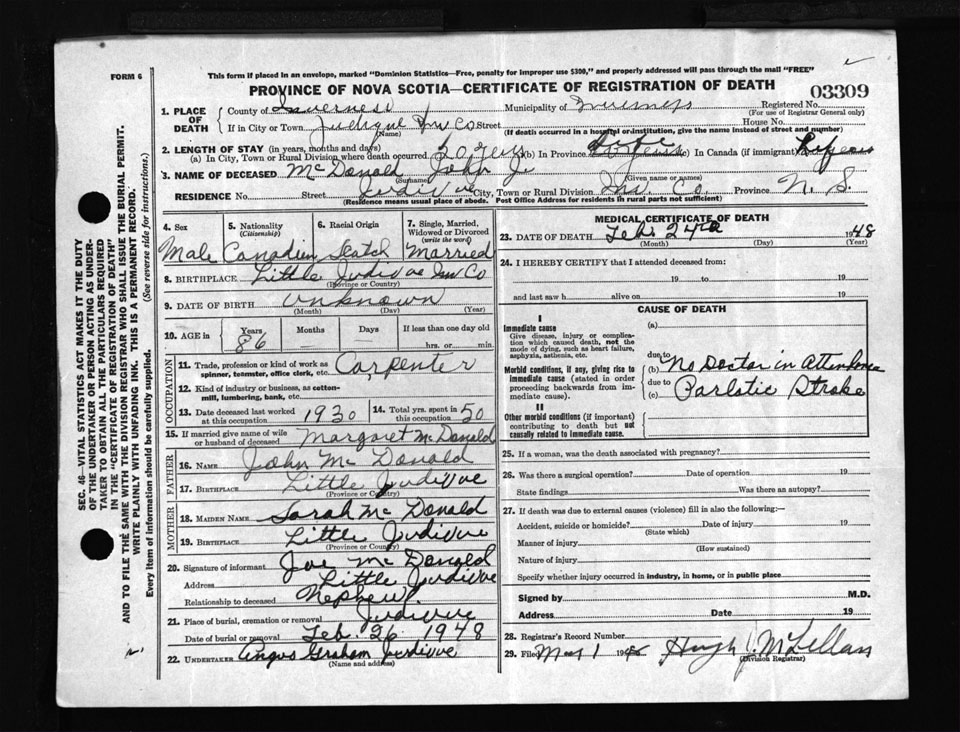 FORM 6
This form if placed in an envelope, marked "Dominion Statistics—Free, penalty for improper use $300," and properly addressed will pass through the mail "FREE"
PROVINCE OF NOVA SCOTIA—CERTIFICATE OF REGISTRATION OF DEATH
03309
1. PLACE OF DEATH
County of Inverness Municipality of Inverness Registered No.
(For use of Registrar General only)
If in City or Town Judique Inv Co Street House No.
(Name) (If death occurred in a hospital or institution, give the name instead of street and number)
2. LENGTH OF STAY (in years, months and days)
(a) In City, Town or Rural Division where death occurred 50 years (b) In Province Life (c) In Canada (if immigrant)
3. NAME OF DECEASED McDonald John J.
(Surname) (Given name or names)
RESIDENCE No. Street Judique City, Town or Rural Division Inv. Co. Province N. S.
(Residence means usual place of abode. Post Office Address for residents in rural parts not sufficient)
4. Sex
Male
5. Nationality
(Citizenship)
Canadien
6. Racial Origin
Scotch
7. Single, Married, Widowed or Divorced
(write the word)
Married
8. BIRTHPLACE Little Judique Inv Co
(Province or Country)
9. DATE OF BIRTH Unknown
(Month) (Day) (Year)
10. AGE in Years Months Days If less than one day old
86 hrs. or min.
OCCUPATION
11. Trade, profession or kind of work as spinner, teamster, office clerk, etc. Carpenter
12. Kind of industry or business, as cotton-mill, lumbering, bank, etc.
13. Date deceased last worked at this occupation 1930
14. Total yrs. spent in this occupation 50
15. If married give name of wife or husband of deceased Margaret McDonald
FATHER
16. NAME John McDonald
17. BIRTHPLACE Little Judique
(Province or Country)
MOTHER
18. MAIDEN NAME Sarah McDonald
19. BIRTHPLACE Little Judique
(Province or Country)
20. Signature of informant Joe McDonald
Address Little Judique
Relationship to deceased Nephew.
21. Place of burial, cremation or removal Judique
Date of burial or removal Feb. 26 1948
22. UNDERTAKER Angus Graham Judique
(Name and address)
MEDICAL CERTIFICATE OF DEATH
23. DATE OF DEATH Feb. 24th 1948
(Month) (Day) (Year)
24. I HEREBY CERTIFY that I attended deceased from:
19 to 19
and last saw h alive on 19
CAUSE OF DEATH
I
Immediate cause
Give disease, injury or complication which caused death, not the mode of dying, such as heart failure, asphyxia, asthenia, etc.
(a)
due to
Morbid conditions, if any, giving rise to immediate cause (stated in order proceeding backwards from immediate cause).
(b) No Doctor in Attendence
due to
(c) Parlotic Stroke
II
Other morbid conditions (if important) contributing to death but not causally related to immediate cause.
25. If a woman, was the death associated with pregnancy?
26. Was there a surgical operation? Date of operation 19
State findings Was there an autopsy?
27. If death was due to external causes (violence) fill in also the following:—
Accident, suicide or homicide? Date of injury 19
(State which)
Manner of injury
(How sustained)
Nature of injury
Specify whether injury occurred in industry, in home, or in public place
Signed by M.D.
Address Date 19
28. Registrar's Record Number
29. Filed Mar 1 1948 Hugh J. McLellan
(Division Registrar)
SEC. 46—VITAL STATISTICS ACT MAKES IT THE DUTY
OF THE UNDERTAKER OR PERSON ACTING AS UNDER-
TAKER TO OBTAIN ALL THE PARTICULARS REQUIRED
IN THE "CERTIFICATE OF REGISTRATION OF DEATH"
AND TO FILE THE SAME WITH THE DIVISION REGISTRAR WHO SHALL ISSUE THE BURIAL PERMIT.
WRITE PLAINLY WITH UNFADING INK. THIS IS A PERMANENT RECORD.
Every item of information should be carefully supplied. (See reverse side for instructions.)